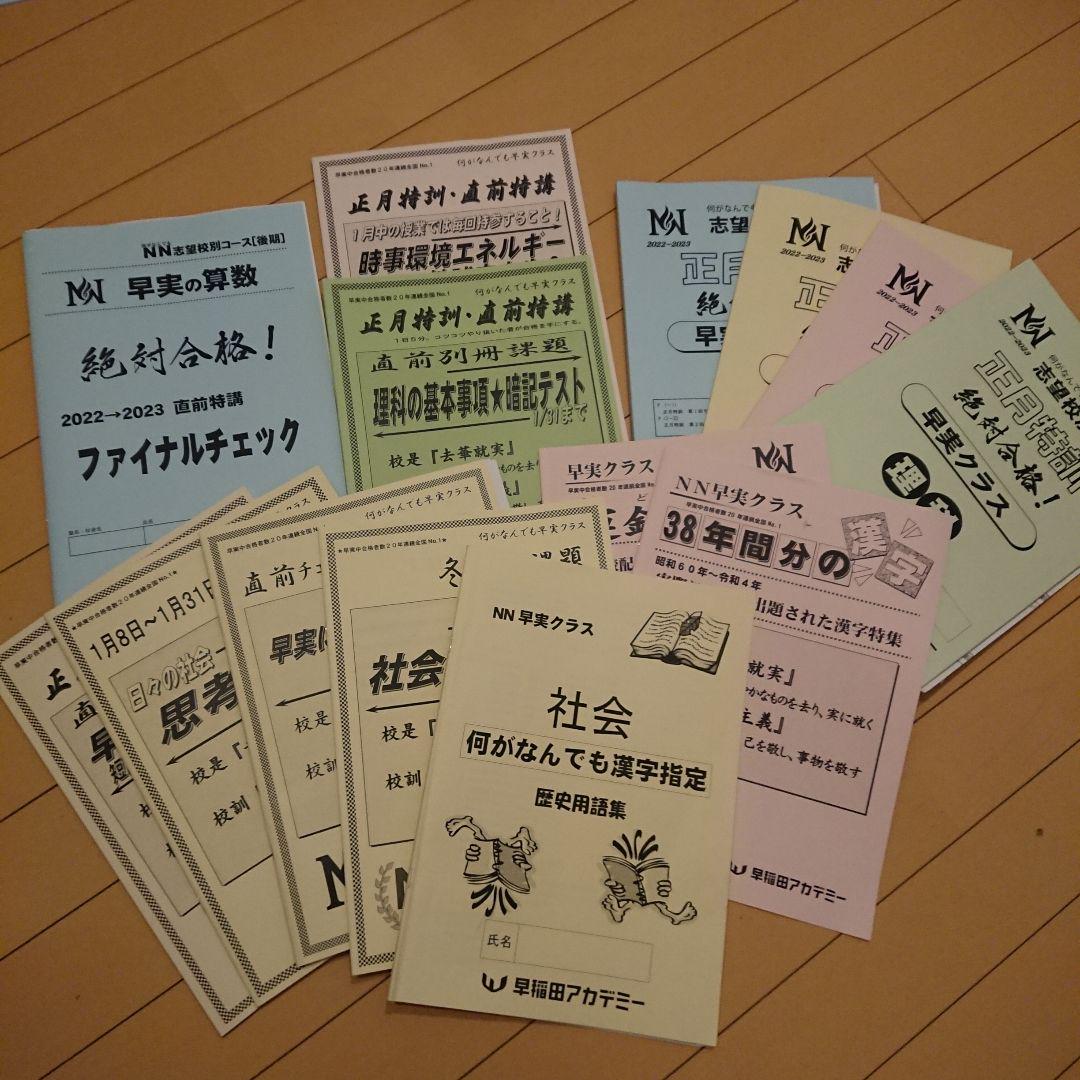 NN志望校別コース[後期]
早実の算数
絶対合格!
2022→2023 直前特講
ファイナルチェック
早実中合格者数20年連続全国No.1
何がなんでも早実クラス
正月特訓・直前特講
1月中の授業では毎回持参すること!
時事環境エネルギー
早実中合格者数20年連続全国No.1
何がなんでも早実クラス
正月特訓・直前特講
1日5分。コツコツやり抜いた者が合格を手にする。
直前別冊課題
理科の基本事項★暗記テスト
1/31まで
校是『去華就実』
2022-2023
志望
正月
絶
早実
2022-2023
2022-2023
2022-2023
志望校
正月特訓
絶対合格!
早実クラス
理
早実クラス
NN早実クラス
早実中合格者数20年連続全国No.1
38年間分の
漢字
昭和60年~令和4年
出題された漢字特集
就実』
やかなものを去り、実に就く
主義』
己を敬し、事物を敬す
早稲田アカデミー
早実中合格者数20年連続全国No.1★
正
直
早
校
★早実中合格者数20年連続全国No.1★
1月8日~1月31日
日々の社会
思考
校是『
校訓
早実中合格者数20年連続全国No.1★
何がなんでも早実クラス
直前チ
早実
校是
校訓
★早実中合格者数20年連続全国No.1★
何がなんでも早実クラス
冬
課題
社会
校是『
校訓
NN 早実クラス
社会
何がなんでも漢字指定
歴史用語集
氏名
早稲田アカデミー